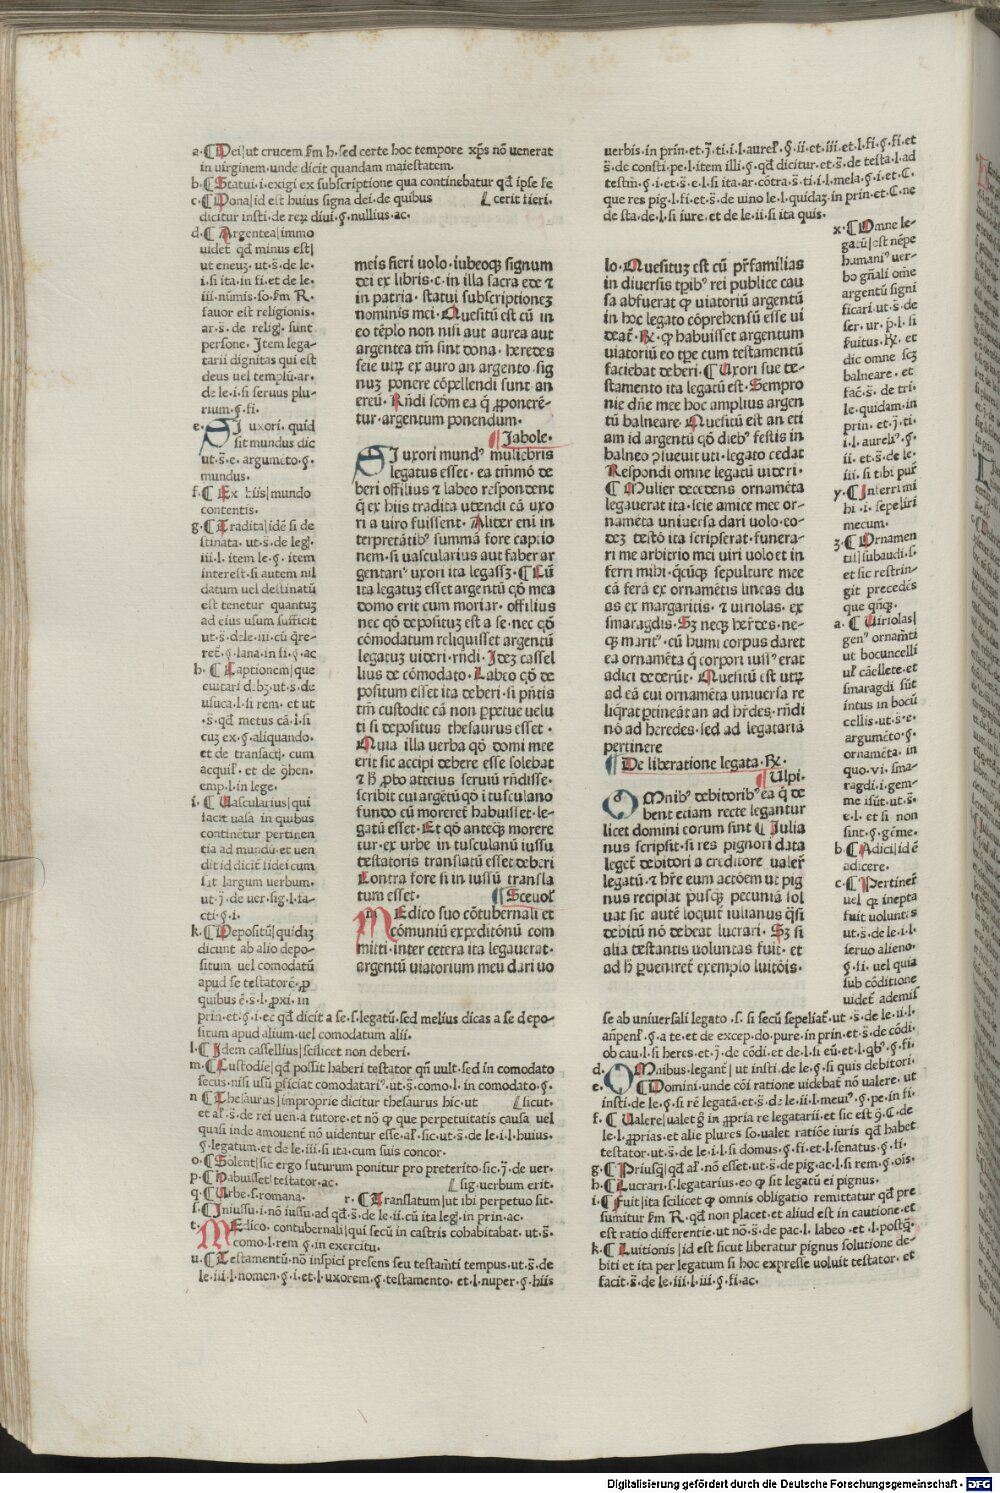 a·¶ Dei|ut crucem ẜm h·sed certe hoc tempore xp̄s nō venerat
in uirginem·unde dicit quandam maiestatem·
b·¶ Statui·i·exigi ex subscriptione qua continebatur qđ ipse fe
c·¶ Dona|id est huius signa dei·de quibus ⁋ cerit fieri·
dicitur insti·de reꝝ diui·§·nullius·ac·
d·¶ Argentea|immo
uidet̄ qđ minus est|
ut eneuꝫ·ut·s̄·de le·
i·si ita·in fi·et de le·
iii·nūmis·so·ẜm R·
fauor est religionis·
ar·s̄·de reliḡ·sunt
persone· Item lega-
tarii dignitas qui est
deus uel templū·ar·
de le·i·si seruus plu-
rium·§·fi·
e· SI uxori· quid
sit mundus dic
ut·s̄·e·argumēto·§·
mundus·
f·¶ Ex hiis|mundo
contentis·
g·¶ Tradita|idē si de
stinata·ut·s̄·de leḡ·
iii·l·item le·§·item
interest·si autem nil
datum uel destinatū
est tenetur quantuꝫ
ad eius usum sufficit
ut·s̄·de·le·iii·cū q̄re-
ret̄·§·lana·in fi·§·ac
h·¶ Captionem|que
euitari dꝫ·ut·s̄·de
usuca·l·si rem· et ut
·s̄·qđ metus cā·l·si
cuꝫ ex·§·aliquando·
et de transact̄· cum
acquir̄· et de ꝯhen·
emp·l·in lege·
i·¶ Uascularius|qui
facit uasa in quibus
continētur pertinen
tia ad mundū·et uen
dit id dicit̄ fidei cum
fit largum uerbum·
ut·j̄·de uer·sig·l·fa-
cti·§·i·
k·¶ Depositū|quidaꝫ
dicunt ab alio depo-
situm uel comodatū
apud se testatorē·ꝓ
quibus ē·s̄·l·ꝓxi·in
prin·et·§·i·ec qđ dicit a se·s·legatū·sed melius dicas a se depo-
situm apud alium·uel comodatum alii·
l·¶ Idem cassellius|scilicet non deberi·
m·¶ Custodie|qđ possit haberi testator qn̄ uult·sed in comodato
secus·nisi usu ꝑficiat comodatari⁹·ut·s̄·como·l·in comodato·§·
n ¶ Thesaurus|improprie dicitur thesaurus hic·ut ⁋ sicut·
et al̄·s̄·de rei uen·a tutore·et nō ꝙ que perpetuitatis causa uel
quasi inde amouent̄ nō uidentur esse·al̄·sic·ut·s̄·de le·i·l·huius·
§·legatum·et de le·iii·si ita·cum suis concor·
o·¶ Solent|sic ergo futurum ponitur pro preterito·sic·j̄·de ver·
p·¶ Habuisset|testator·ac· ⁋ sig·uerbum erit·
q·¶ Urbe·s·romana· r·¶ Translatum|ut ibi perpetuo sit·
s·¶ Iniussu·i·nō iussu·ad qđ·s̄·de le·ii·cū ita leḡ·in prin·ac·
t· MEdico·contubernali|qui secū in castris cohabitabat·ut·s̄·
como·l·rem §·in exercitu·
u·¶ Testamentū·nō inspici presens seu testam̄ti tempus·ut·s̄·de
le·iii·l·nomen·§·i·et·l·uxorem·§·testamento·et·l·nuper·§·hiis
meis fieri uolo·iubeoqꝫ signum
dei ex libris·c·in illa sacra ede ⁊
in patria· statui subscriptioneꝫ
nominis mei· Quesitū est cū in
eo tēplo non nisi aut aurea aut
argentea tm̄ sint dona· heredes
seie utꝝ ex auro an argento·sig
nuꝫ ponere cōpellendi sunt·an
ereū· Rn̄di scōm ea q̄ ꝓponerē-
tur·argentum ponendum·
¶ Iabole·
SI uxori mund⁹ muliebris
legatus esset· ea tm̄mō de
beri offilius ⁊ labeo respondent
q̄ ex hiis tradita utendi cā uxo
ri a uiro fuissent· Aliter eni in
terpretātib⁹ summā fore captio
nem·si uascularius aut faber ar
gentari⁹ uxori ita legassꝫ·¶ Cū
ita legatuꝫ esset argentū qō mea
domo erit cum moriar· offilius
nec qō depositū est a se·nec qō
cōmodatum reliquisset argentū
legatuꝫ uideri·rn̄di· Ideꝫ cassel
lius de cōmodato· Labeo qō de
positum esset ita deberi·si pn̄tis
tm̄ custodie cā non ꝑpetue uelu
ti si depositus thesaurus esset·
Quia illa uerba qō domi mee
erit sic accipi debere esse solebat
⁊ ħ ꝓbo atteius seruiū rn̄disse·
scribit cui argētū qō i tusculano
fundo cū moreret̄ habuisset·le-
gatū esset· Et qō anteqꝫ morere
tur·ex urbe in tusculanū iussu
testatoris translatū esset·deberi
Contra fore si in iussū transla
tum esset· ¶ Sceuol̄
MEdico suo cōtubernali et
cōmuniū expeditōnū com
mitti·inter cetera ita legauerat·
argentū uiatorium meū dari uo
verbis·in prin·et·j̄·ti·i·l·aurel̄·§·ii·et·iii·et·l·fi·§·fi·et
s̄·de consti·pe·l·item illi·§·qđ dicitur·et·s̄·de testa·l·ad
testm̄·§·i·et·s̄·e·l·si ita·ar·cōtra·s̄·ti·i·l·mela·§·i·et·C·
que res pig·l·fi·et·s̄·de uino le·l·quidaꝫ·in prin·et·C·ne
de sta·de·l·si iure·et de le·ii·si ita quis·
lo· Quesituꝫ est cū pr̄familias
in diuersis tꝑib⁹ rei publice cau
sa abfuerat ꝙ uiatoriū argentū
in hoc legato cōprehensū esse ui
deat̄· ℞· ꝙ habuisset argentum
uiatoriū eo tꝑe cum testamentū
faciebat deberi·¶ Uxori sue te-
stamento ita legatū est· Sempro
nie dn̄e mee hoc amplius argen
tū balneare· Quesitū est an eti
am id argentū qō dieb⁹ festis in
balneo ꝯsueuit uti·legato cedat
Respondi omne legatū uideri·
¶ Mulier decedens ornamēta
legauerat ita·seie amice mee or-
namēta uniuersa dari uolo·eo-
deꝫ testō ita scripserat·funera-
ri me arbitrio mei uiri uolo·et in
ferri mihi·q̄cūqꝫ sepulture mee
cā ferā ex ornamētis lineas du
as ex margaritis· ⁊ uiriolas· ex
smaragdis· Sꝫ neqꝫ hr̄des·ne-
qꝫ marit⁹·cū humi corpus daret
ea ornamēta q̄ corpori iuss⁹erat
adici dederūt· Quesitū est utꝝ
ad eā cui ornamēta uniuersa re
liq̄rat ꝑtineāt an ad hr̄des·rn̄di
nō ad heredes·sed ad legatariā
pertinere
¶ De liberatione legata·℞·
¶ Ulpi·
OMnib⁹ debitorib⁹ ea q̄ de
bent etiam recte legantur
licet domini eorum sint ¶ Iulia
nus scripsit·si res pignori data
leget̄ debitori a creditore ualer̄
legatū·⁊ hr̄e eum actōem ut pig
nus recipiat pusqꝫ pecuniā sol
uat sic autē loquit̄ iulianus q̄si
debitū nō debeat lucrari· Sꝫ si
alia testantis uoluntas fuit· et
ad ħ ꝑueniret̄ exemplo luitōis·
x·¶ Omne le-
gatū|est nēpe
humani⁹ uer-
bo gn̄ali om̄e
argentū signi
ficari·ut·s̄·de
ser·ur·p̄·l·si
ẜuitus·℞· et
dic omne sꝫ
balneare· et
fac̄·s̄· de tri·
le·quidam·in
prin·et·j̄·ti·
i·l·aureli⁹·§·
ii·et·s̄·de le·
iii·si tibi pur̄
y·¶ Inferri mi
hi·i·sepeliri
mecum·
z·¶ Ornamen
tis|subaudi·s·
et sic restrin-
git precedēs
que qn̄qꝫ·
a·¶ Uiriolas|
gen⁹ ornam̄ti
ut bocuncelli
ul̄ cāellete·et
smaragdi sūt
intus in bocū
cellis·ut·s̄·e·
argumēto·§·
ornamēta· in
quo·vi·sma-
ragdi·i·gem-
me isūt·ut·s̄·
e·l·et si non
sint·§·gēme·
b·¶ Adici|id ē
adicere·
c·¶ Pertiner̄
uel qꝛ inepta
fuit uoluntas
ut·s̄·de le·i·l·
seruo alieno·
§·fi·uel quia
sub cōditione
uidet̄ ademis
se ab uniuersali legato·s·si secū sepeliat̄·ut·s̄·de le·ii·l·
an̄pen̄·§·a te·et de excep·do·pure·in prin·et·s̄·de cōdi·
ob cau·l·si heres·et·j̄·de cōdi·et de·l·si eū·et·l·qb⁹·§·fi·
d· OMnibus·legant̄|ut insti·de le·§·si quis debitori·
e· ¶ Domini·unde cōi ratione uidebat̄ nō ualere·ut
insti·de le·§·si rē legatā·et·s̄·de le·ii·l·meui⁹·§·pe·in fi·
f·¶ Ualere|ualet g̊ in ꝓpria re legatarii·et sic est ꝯ·C·de
le·l·ꝓprias·et alie plures so·ualet ratiōe iuris qđ habet
testator·ut·s̄·de le·i·l·si domus·§·fi·et·l·senatus·§·fi·
g·¶ Priusq̄|qđ al̄·nō esset·ut·s̄·de pig·ac·l·si rem·§·ois·
h·¶ Lucrari·s·legatarius·eo ꝙ sit legatū ei pignus·
i·¶ Fuit|ita scilicet ꝙ omnis obligatio remittatur qđ pre
sumitur ẜm R·qđ non placet·et aliud est in cautione·et
est ratio differentie·ut nō·s̄·de pac·l·labeo·et·l·postqꝫ·
k·¶ Luitionis|id est sicut liberatur pignus solutione de-
biti et ita per legatum si hoc expresse uoluit testator·et
facit·s̄·de le·iii·l·iii·§·fi·ac·
Digitalisierung gefördert durch die Deutsche Forschungsgemeinschaft - DFG